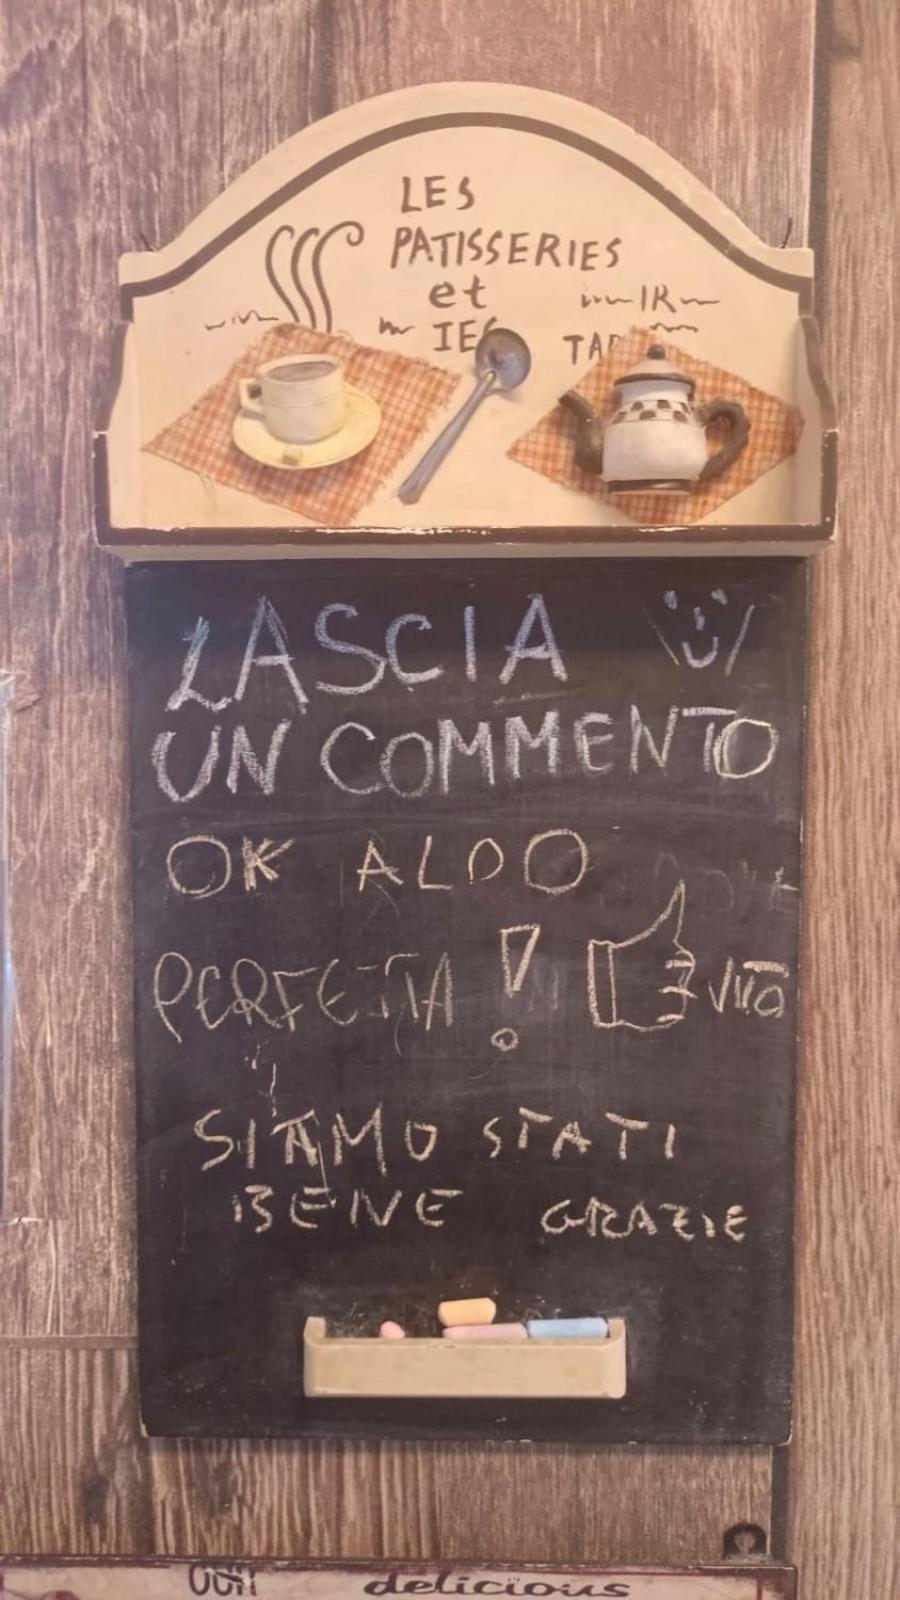 LES
PATISSERIES
et
IR
TAR
LASCIA
UN COMMENTO
OK ALDO
PERFETTA ! VITO
SIAMO STATI
BENE GRAZIE
delicious